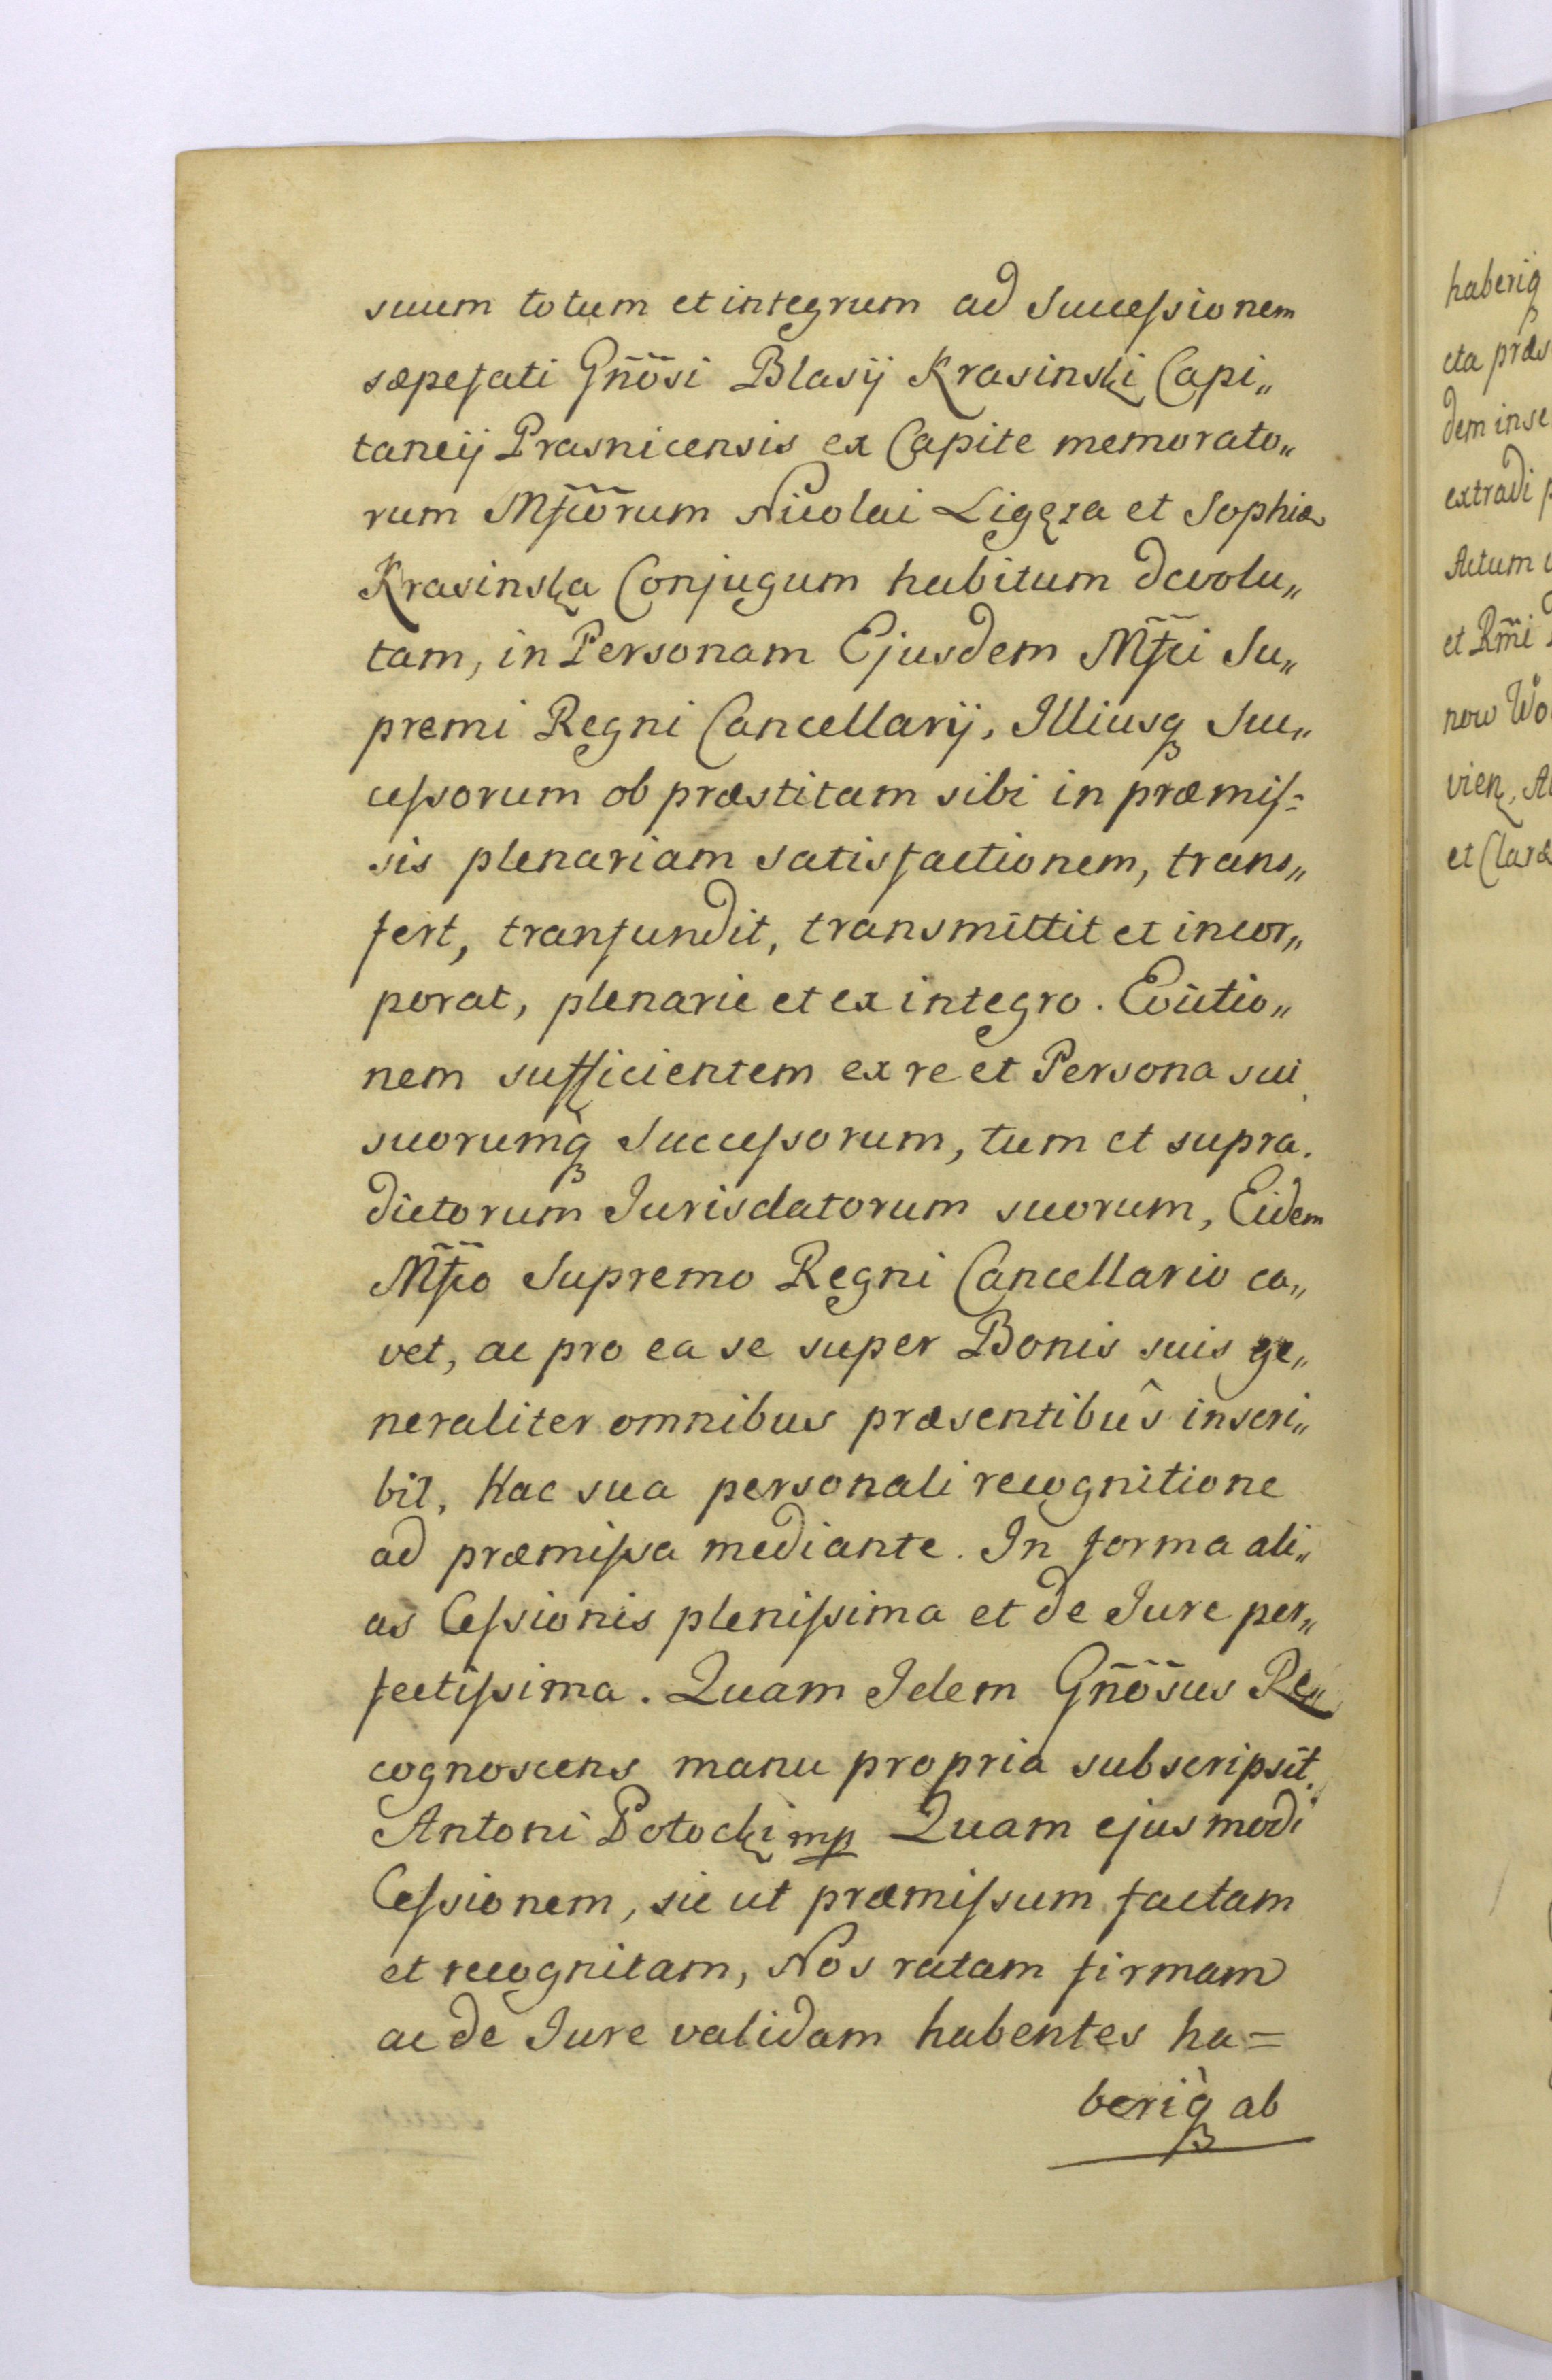 suum totum et integrum ad Succeſsionem
sæpefati Gnõsi Blasij Krasinski Capi„
taneij Prasnicensis ex Capite memorato„
rum Mfcorum Nicolai Ligęza et Sophiæ
Krasinska Conjugum habitum devolu„
tam, in Personam Ejusdem Mfci Su„
premi Regni Cancellarij, Illiusq Suc„
ceſsorum ob præstitam sibi in præmiſ=
sis plenariam satisfactionem, trans„
fert, transfundit, transmittit et incor„
porat, plenarie et ex integro. Evictio„
nem sufficientem ex re et Persona sui
suorumq Succeſsorum, tum et supra.
dictorum Jurisdatorum suorum, Eidem
Mfco Supremo Regni Cancellario ca„
vet, ac pro ea se super Bonis suis ge„
neraliter omnibus præsentibûs inscri„
bit, Hac sua personali recognitione
ad præmiſsa mediante. In forma ali„
as Ceſsionis pleniſsima et de Jure per„
fectiſsima. Quam Idem Gnõsus Re„
cognoscens manu propria subscripsit.
Antoni Potocki mp Quam ejusmodi
Ceſsionem, sic ut præmiſsum factam
et recognitam, Nos ratam firmam
ac de Jure validam habentes ha=
beriq ab
haberiq
cta præs
dem inse
extradi
Actum
et Rmi
now Wo
vien, A
et Claræ